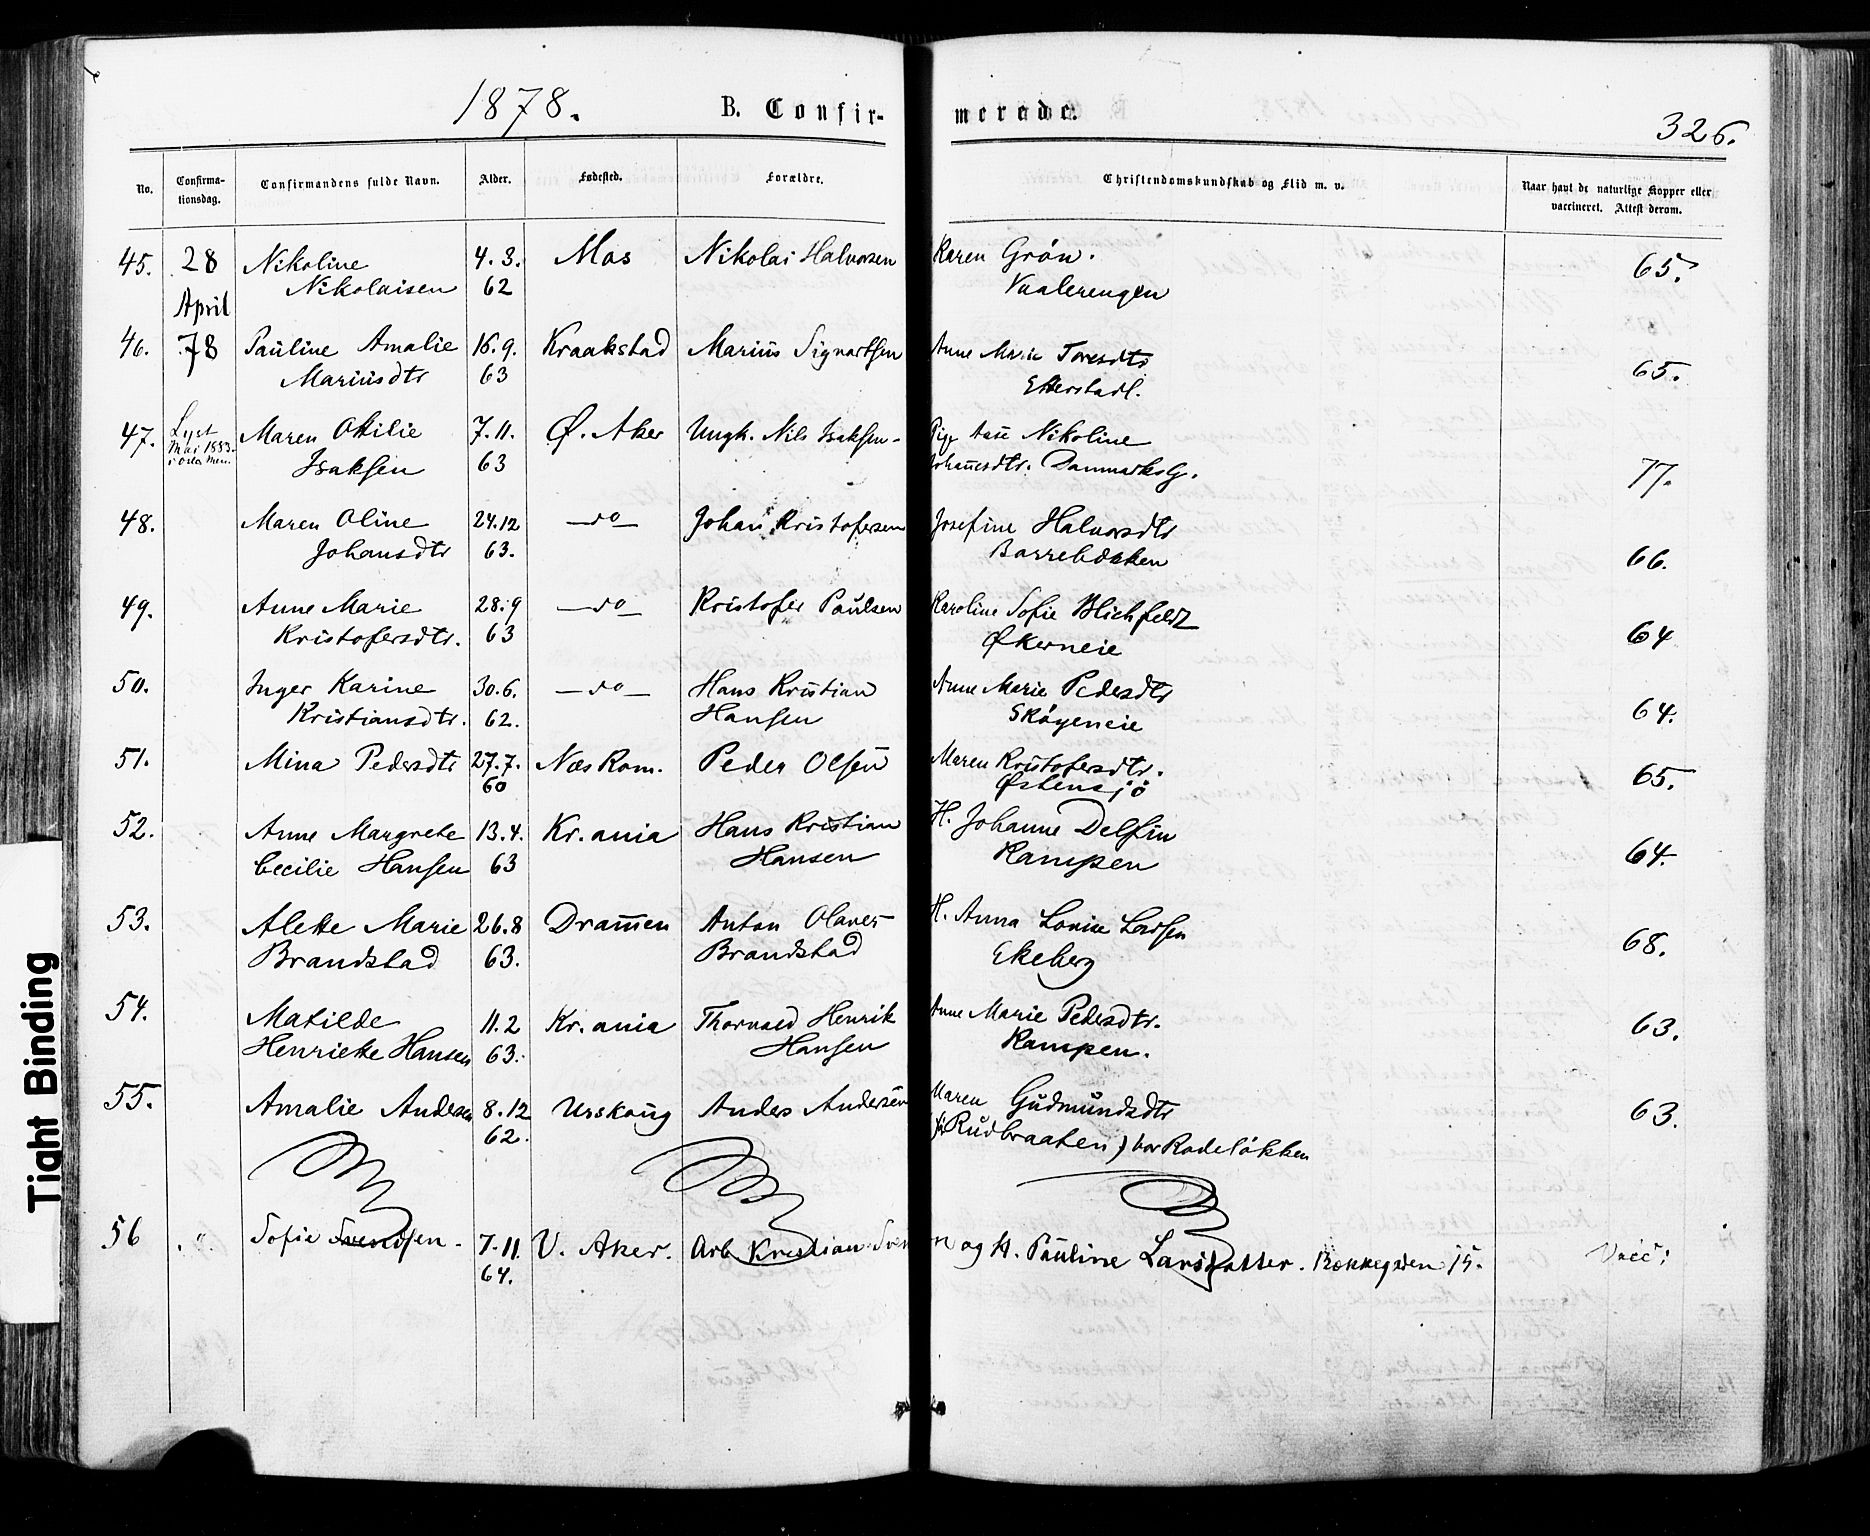 1878. B. Confir- merede. 326.
No. Confirma- tionsdag. Confirmandens fulde Navn. Alder. Fødested. Forældre. Christendomskundskab og Flid m. v. Naar havt de naturlige Kopper eller vaccineret. Attest derom.
45. 28 Nikoline 4. 3. Mos Nikolai Halvorsen Karen Grøn. 65.
April Nikolaisen 62 Vaalerengen
46. 78 Pauline Amalie 16.9. Kraakstad Marius Sigvartsen Anne Marie Toresdtr 65.
Mariusdtr 63 Etterstad.
47. Lyst Maren Otilie 7.11. Ø. Aker Ungk. Nils Isaksen - Pige Nikoline
Mai 1883. Isaksen 63 Johannesdtr. Danmarks G. 77.
i Oslo Men.
48. Maren Oline 24.12 —do— Johan Kristofersen Josefine Halvorsdtr
Johansdtr 63. Barrebækken 66.
49. Anne Marie 28.9 —do— Kristofer Paulsen Karoline Sofie Blichfeldt
Kristofersdtr. 63 Økerneie 64
50. Inger Karine 30.6. —do— Hans Kristian Anne Marie Pedersdtr
Kristiansdtr. 62. Hansen Skøyeneie 64.
51. Mina Pedersdtr 27.7. Næs Rom. Peder Olsen Maren Kristofersdtr.
60 Østensjø 65.
52. Anne Margrete 13.4. Kr.ania Hans Kristian H. Johanne Delfin
Cecilie Hansen 63 Hansen Kampen 64.
53. Alette Marie 26.8 Drammen Anton Olaves H. Anna Lovise Larsen
Brandstad 63. Brandstad Ekeberg 68.
54. Matilde 11.2 Kr.ania Thorvald Henrik Anne Marie Pedersdtr.
Henriette Hansen 63. Hansen Kampen. 63.
55. Amalie Andersen 8.12 Urskoug Anders Andersen Maren Gudmundsdtr 63.
62. Rudbraaten) bor Rodeløkken
56 " Sofie Svendsen. 7.11. V. Aker. Arb Kristian Svendsen og H. Pauline Larsdatter. Bekkegaden 15. Vacc:
64.
Tight Binding